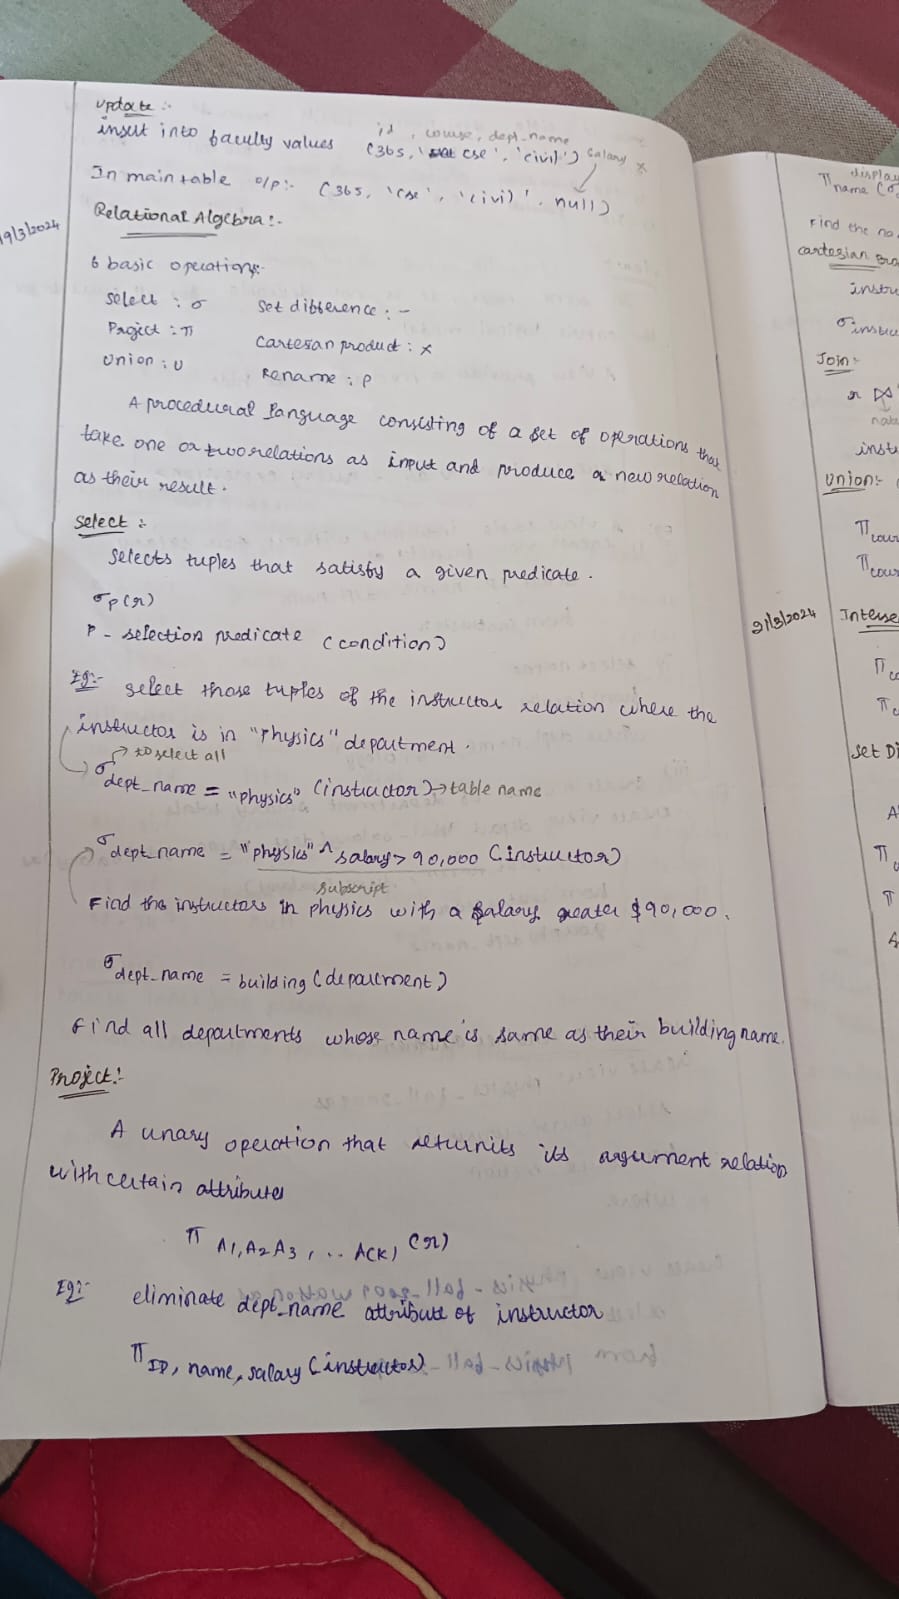 update :-
insert into faculty values (365, 'cse', 'civil')
id, course, dept_name
salary x
In main table o/p:- (365, 'cse', 'civil', null)
19/3/2024
Relational Algebra:-
6 basic operations:-
select : σ
set difference : -
Project : π
Cartesan product : x
Union : U
Rename : ρ
A procedural language consisting of a set of operations that
take one or two relations as input and produce a new relation
as their result.
select :
selects tuples that satisfy a given predicate.
σp(r)
P - selection predicate (condition)
Eg:- select those tuples of the instructor relation where the
instructor is in "Physics" department.
→ to select all
σ dept_name = "physics" (instructor) → table name
σ dept_name = "physics" ^ salary > 90,000 (instructor)
subscript
Find the instructors in physics with a salary greater $90,000.
σ dept_name = building (department)
Find all departments whose name is same as their building name.
Project:-
A unary operation that returnits its argument relation
with certain attributes
π A1, A2 A3, .. ACK) (r)
Eg:- eliminate dept_name attribute of instructor
π ID, name, salary (instructor)
display
π name (σ
Find the no.
cartesian
instru
σ instru
Join:-
r ⋈
inst
Union:- (
π cour
π cour
21/3/2024
Interse
π co
π c
set Di
A
π
π